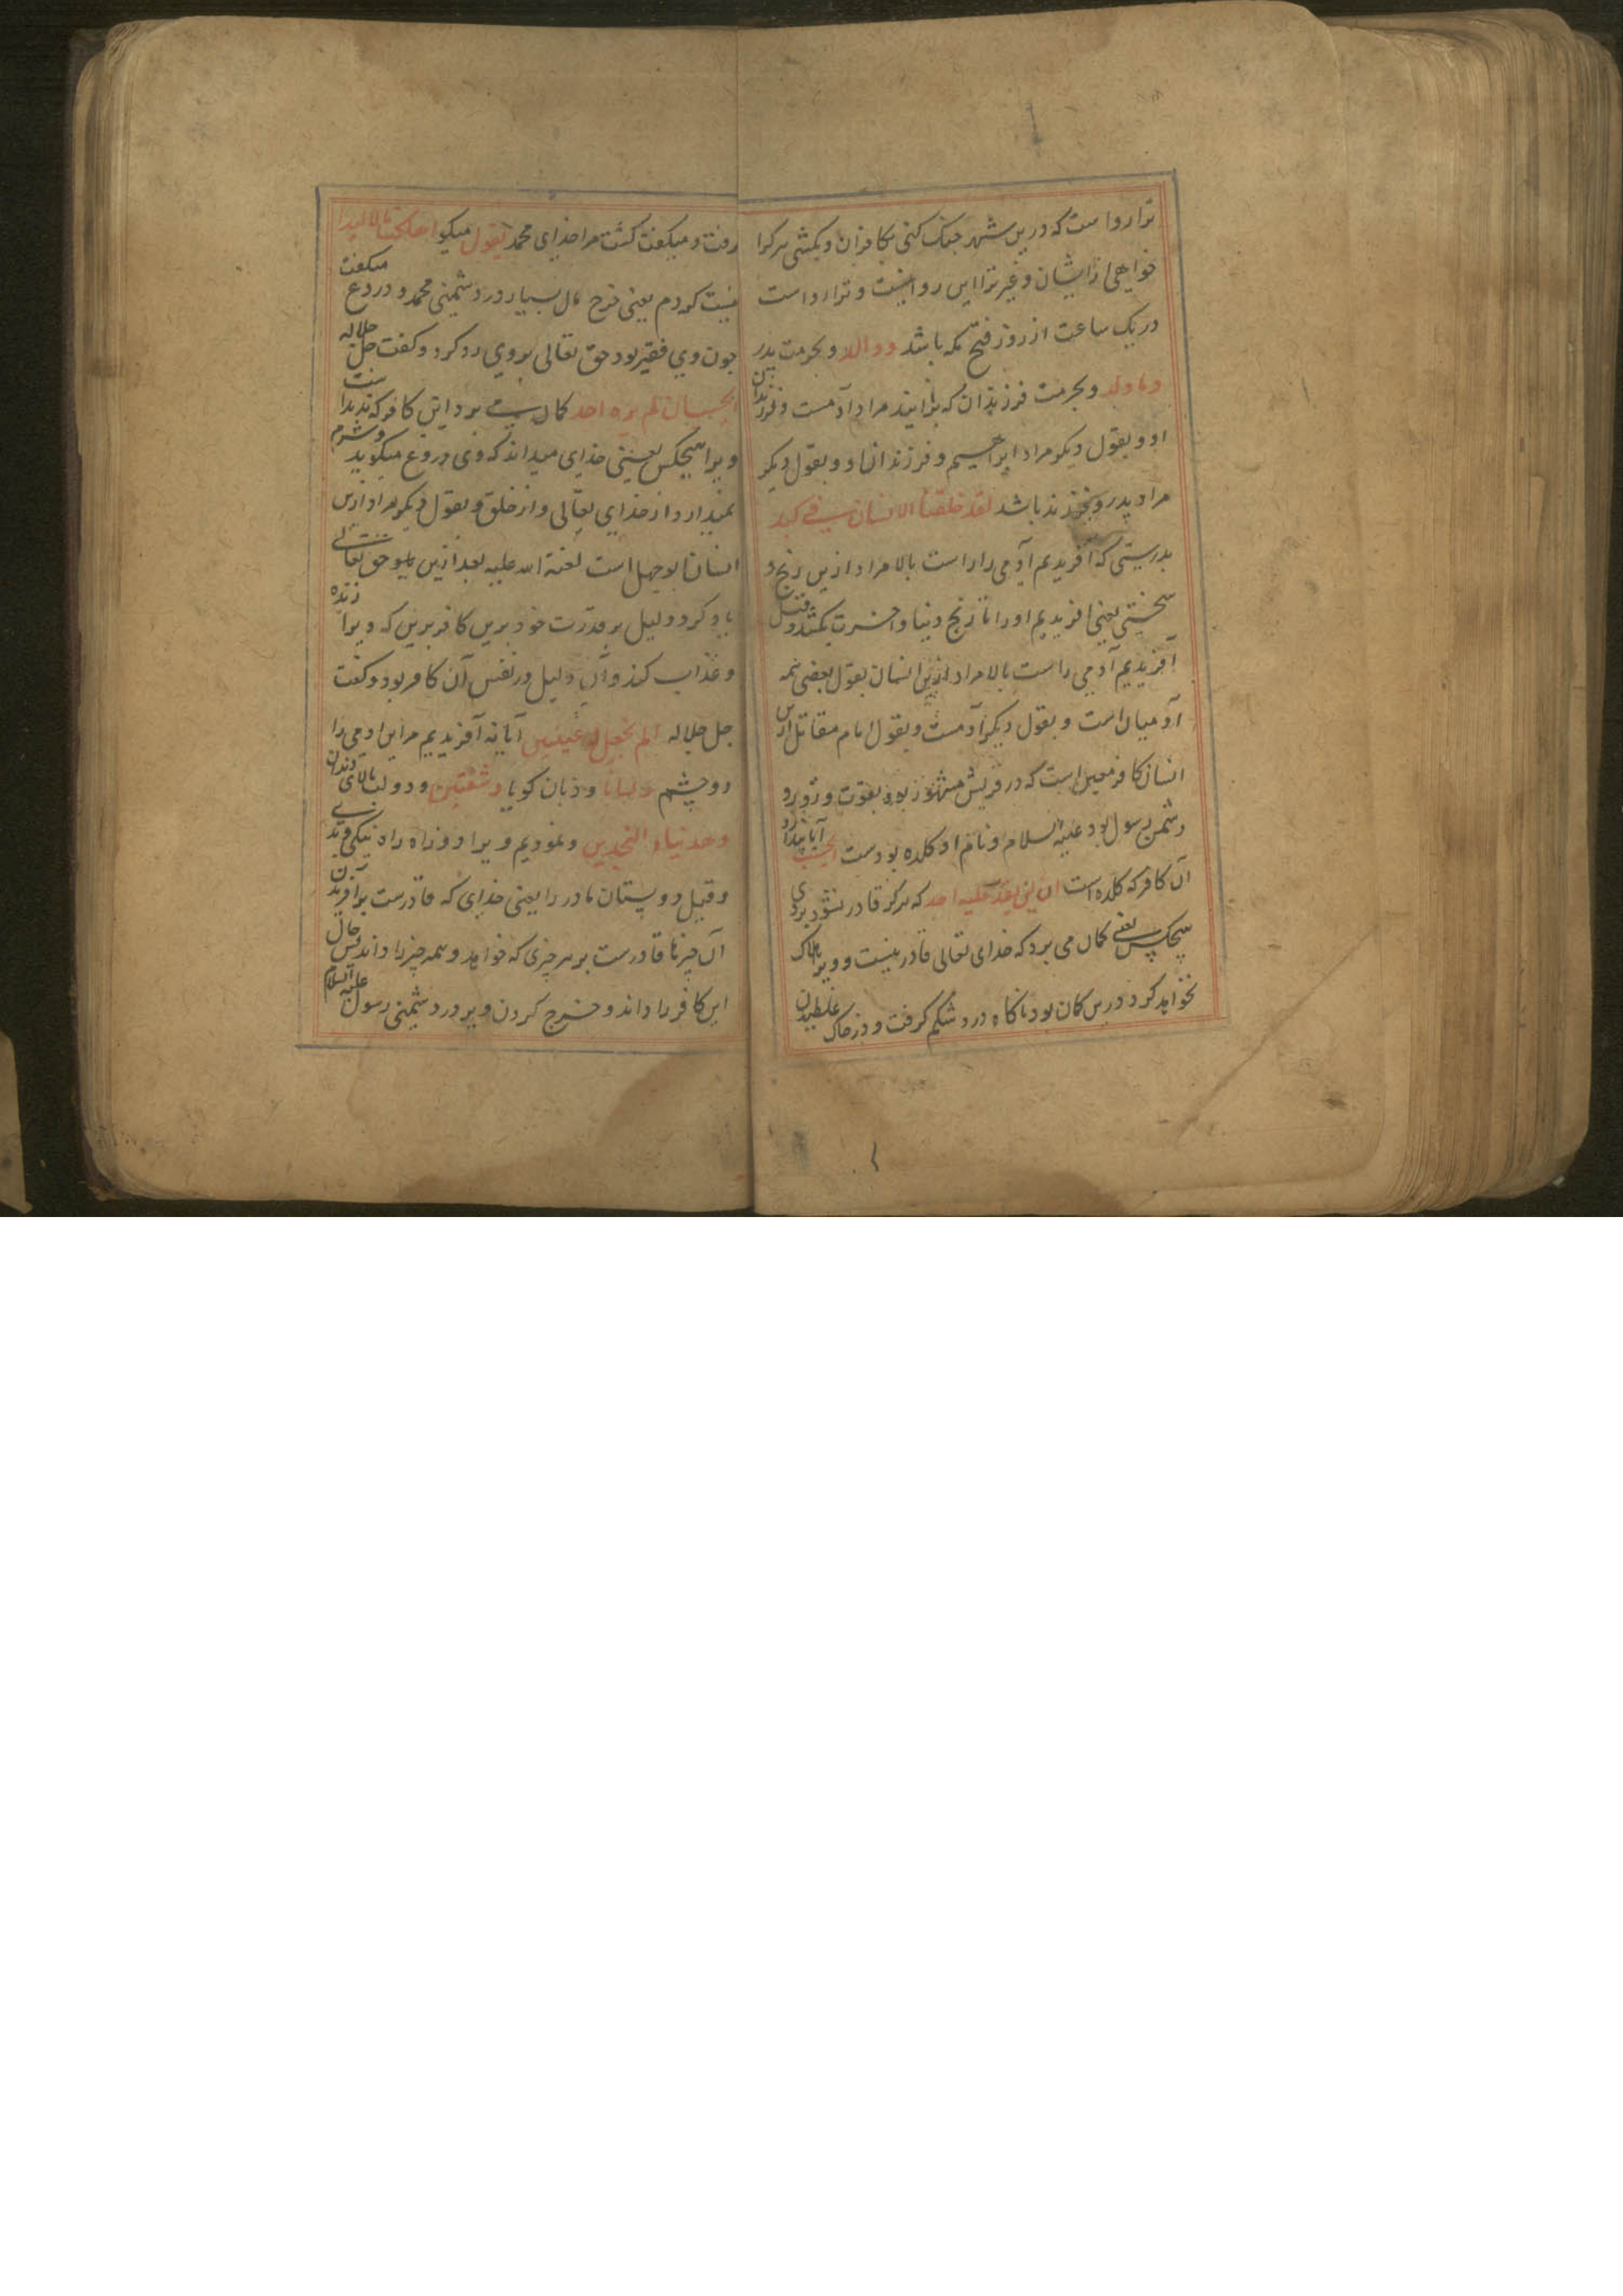 ترا روا ست که درین شهر جنک کنی بکافران و بکشی هرکرا
خواهی از ایشان و غیر ترا این روا نیست و ترا روا است
در یک ساعت از روز فتح مکه باشد ووالد و بحرمت پدر
وما ولد و بحرمت فرزندان که بزایند مراد آدمست و فرزندان
او و بقول دیکر مراد ابراهیم و فرزندان او و بقول دیکر
مراد پدر و فرزند باشد لقد خلقنا الانسان فی کبد
بدرستی که آفریدیم آدمی را راست بالا مراد ازین رنج و
سختی یعنی افریدیم او را تا رنج دنیا و اخرت بکشد و قیل
آفریدیم آدمی راست بالا مراد ازین انسان بقول بعضی همه
آدمیان است و بقول دیکر آدمست و بقول امام مقاتل ازین
انسان کافر معین است که در قریش مشهور بود بقوت و زور و
دشمن رسول بود علیه السلام و نام او کلده بودست ایحسب آیا پندارد
آن کافر که کلده است ان لن یقدر علیه احد که هرکز قادر نشود بر وی
هیچکس یعنی کمان می برد که خدای تعالی قادر نیست و ویرا هلاک
نخواهد کرد درین کمان بود ناکاه درد شکم کرفت و در خاک غلطیدن
رفت و میکفت کشت مرا خدای محمد یقول میکو اهلکت مالا لبدا
نیست کردم یعنی خرج مال بسیار در دشمنی محمد و دروغ میکفت
چون وی فقیر بود حق تعالی بروی رد کرد و کفت جل جلاله
ایحسب ان لم یره احد کمان برد این کافر که ندیدست
ویرا هیچکس یعنی خدای میداند که وی دروغ میکوید و شرم
نمیدارد از خدای تعالی و از خلق و بقول دیکر مراد ازین
انسان ابوجهل است لعنة الله علیه بعد ازین حق تعالی
یاد کرد دلیل بر قدرت خود برین کافر برین که ویرا زنده
و عذاب کند و آن دلیل در نفس آن کافر بود و کفت
جل جلاله الم نجعل له عینین آیا نه آفریدیم مر این ادمی را
دو چشم ولسانا و زبان کویا وشفتین و دو لب بالای دندان
وهدیناه النجدین و نمودیم ویرا دو راه راه نیکی و بدی
و قیل دو پستان مادر را یعنی خدای که قادرست برآفریدن
آن چیزها قادرست بر هر چیزی که خواهد و همه چیز را داند پس حال
این کافر را داند و خرج کردن ویرا در دشمنی رسول علیه السلام